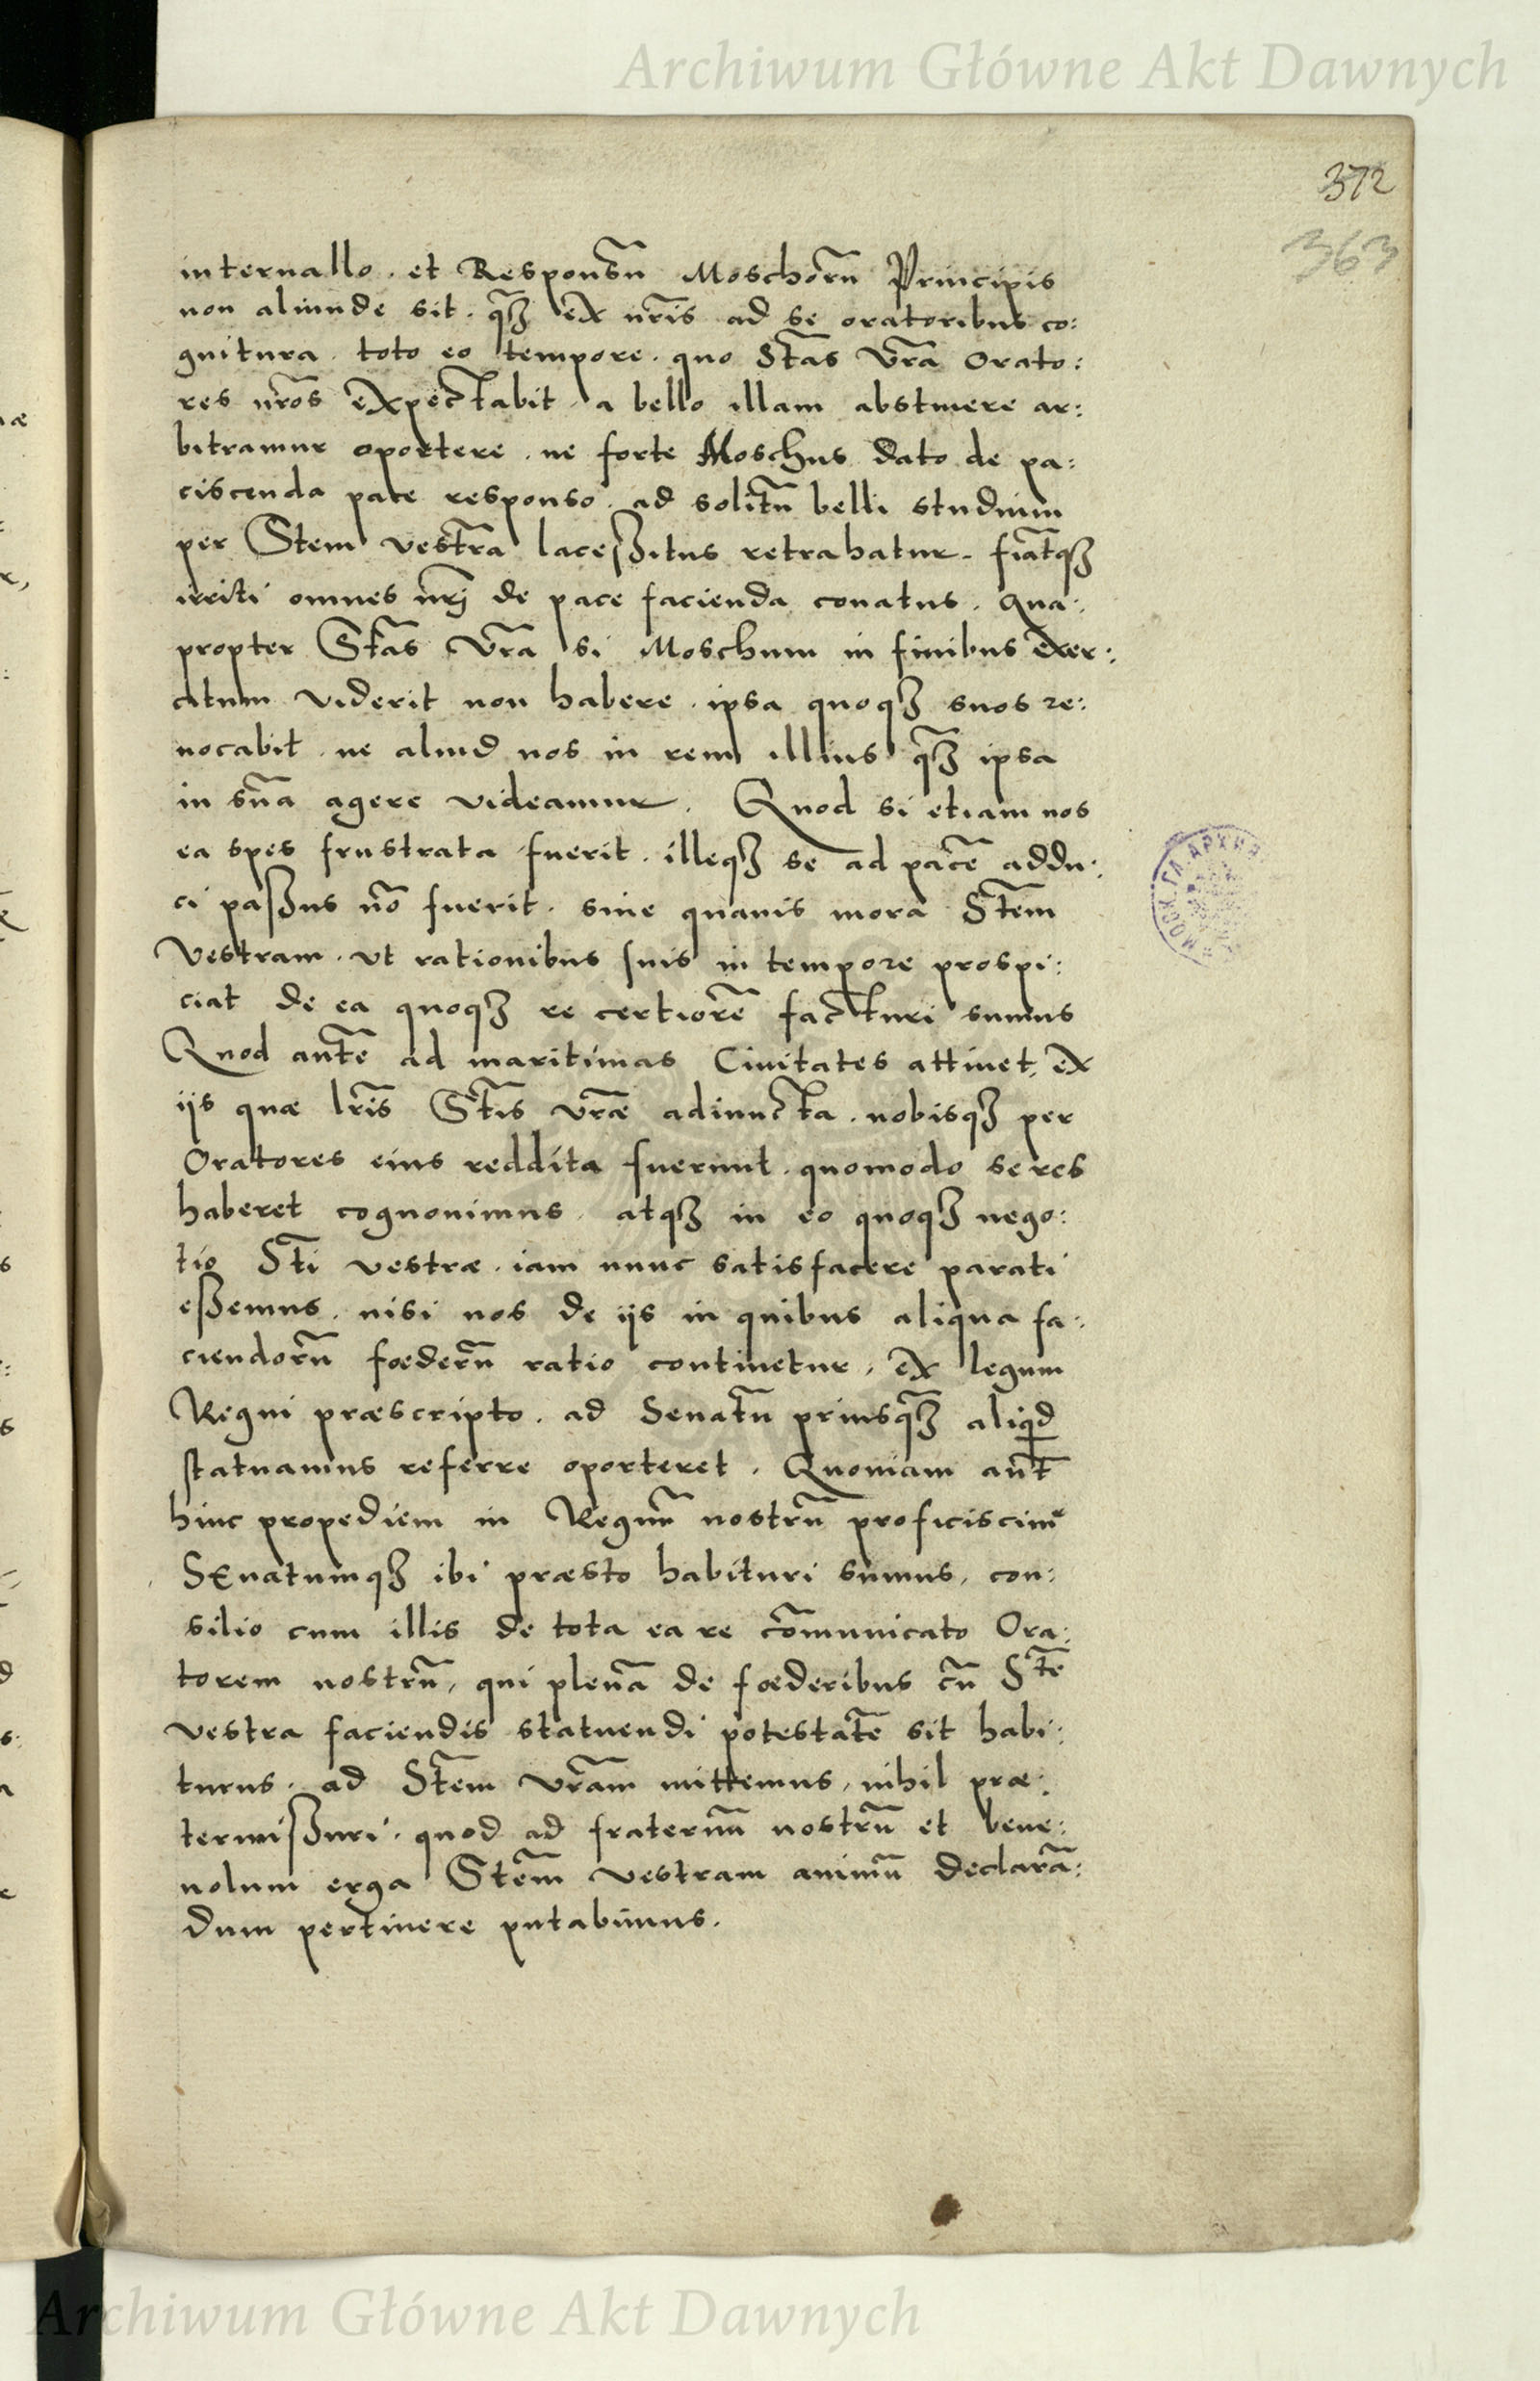 Archiwum Główne Akt Dawnych
372
363
interuallo. et Responsũ Moschorũ Principis
non aliunde sit. q̃ꝫ ex nr̃is ad se oratoribus co:
gnitura. toto eo tempore. quo St̃as Vr̃a Orato:
res nr̃os expectabit. a bello illam abstinere ar:
bitramur oportere. ne forte Moschus dato de pa:
ciscenda pace responso. ad solitũ belli studium
per Stem vestrã lacessitus retrahatur. fiãtqꝫ
irriti omnes nr̃j de pace facienda conatus. Qua:
propter St̃as Vr̃a si Moschum in finibus exer:
citum viderit non habere. ipsa quoqꝫ suos re:
uocabit. ne aliud nos in rem illius q̃ꝫ ipsa
in suã agere videamur. Quod si etiam nos
ea spes frustrata fuerit. illeqꝫ se ad pacẽ addu:
ci passus nõ fuerit. sine quauis mora St̃em
Vestram. vt rationibus suis in tempore prospi:
ciat de ea quoqꝫ re certiorẽ facturi sumus
Quod autẽ ad maritimas Ciuitates attinet, ex
ijs quæ lr̃is St̃is vr̃æ adiuncta. nobisqꝫ per
Oratores eius reddita fuerunt. quomodo se res
haberet cognouimus. atqꝫ in eo quoqꝫ nego:
tio St̃i vestræ. iam nunc satisfacere parati
essemus. nisi nos de ijs in quibus aliqua fa:
ciendorũ fœderũ ratio continetur, ex legum
Regni præscripto. ad Senatũ priusq̃ꝫ aliqd
statuamus referre oporteret. Quoniam aut̃
hinc propediem in Regnũ nostrũ proficiscimꝰ
SEnatumqꝫ ibi præsto habituri sumus, con:
silio cum illis de tota ea re cõmunicato Ora:
torem nostrũ, qui plenã de fœderibus cũ St̃e
vestra faciendis statuendi potestatẽ sit habi:
turus. ad St̃em vr̃am mittemus, nihil præ:
termissuri. quod ad fraternũ nostrũ et bene:
uolum erga St̃em vestram animũ declarã:
dum pertinere putabimus.
Archiwum Główne Akt Dawnych